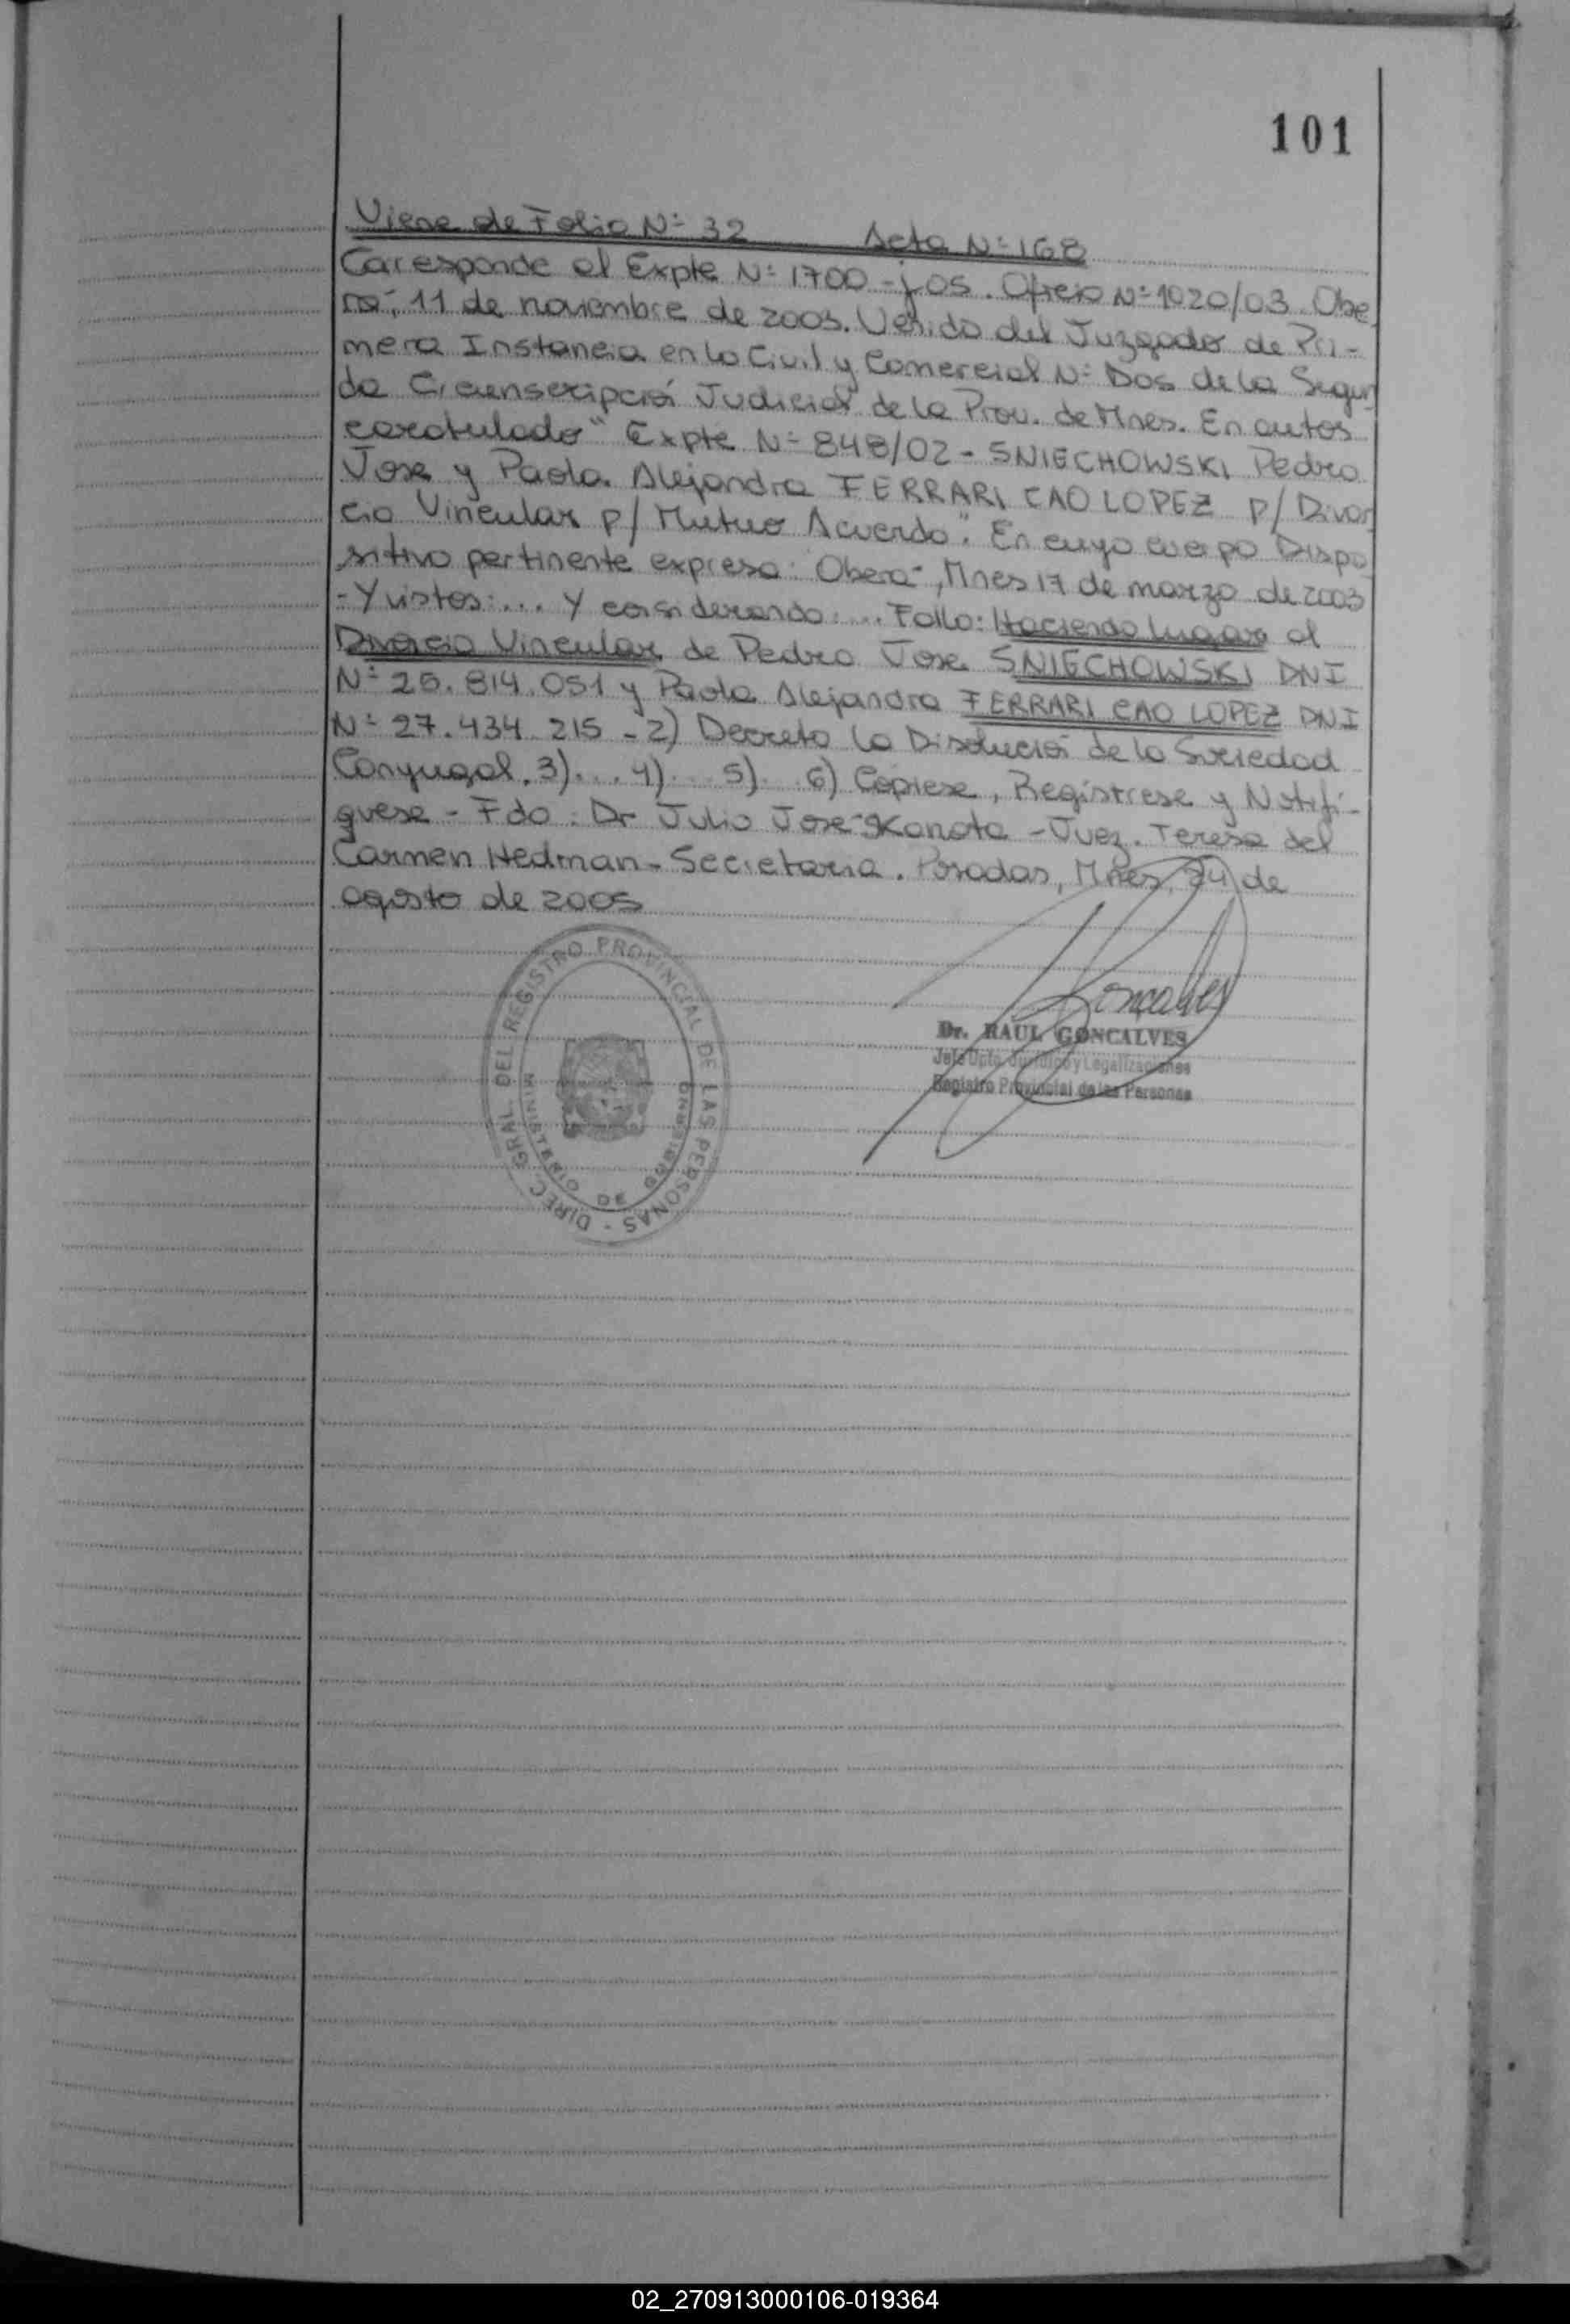 101
Viene de Folio Nº 32 Acta Nº 168
Corresponde al Expte Nº 1700-j-05. Oficio Nº 1020/03. Obe
rá, 11 de noviembre de 2003. Venido del Juzgado de Pri-
mera Instancia en lo Civil y Comercial Nº Dos de la Segun
da Circunscripción Judicial de la Prov. de Mnes. En autos
caratulado "Expte Nº 848/02 - SNIECHOWSKI Pedro
Jose y Paola Alejandra FERRARI CAO LOPEZ p/ Divor
cio Vincular p/ Mutuo Acuerdo". En cuyo cuerpo Dispo
sitivo pertinente expresa: Oberá, Mnes 17 de marzo de 2003
- Y vistos:... Y considerando:... Fallo: Haciendo lugar al
Divorcio Vincular de Pedro Jose SNIECHOWSKI DNI
Nº 25.814.051 y Paola Alejandra FERRARI CAO LOPEZ DNI
Nº 27.434.215 - 2) Decreto la Disolución de la Sociedad
Conyugal. 3)... 4)... 5)... 6) Copiese, Registrese y Notifi-
quese - Fdo: Dr Julio José Skanata - Juez. Teresa del
Carmen Hedman - Secretaria. Posadas, Mnes, 24 de
agosto de 2005
Goncalves
Dr. RAUL GONCALVES
Jefe Dpto. Jurídico y Legalizaciones
Registro Provincial de las Personas
DIREC. GRAL. DEL REGISTRO PROVINCIAL DE LAS PERSONAS -
MINISTERIO DE GOBIERNO
02_270913000106-019364